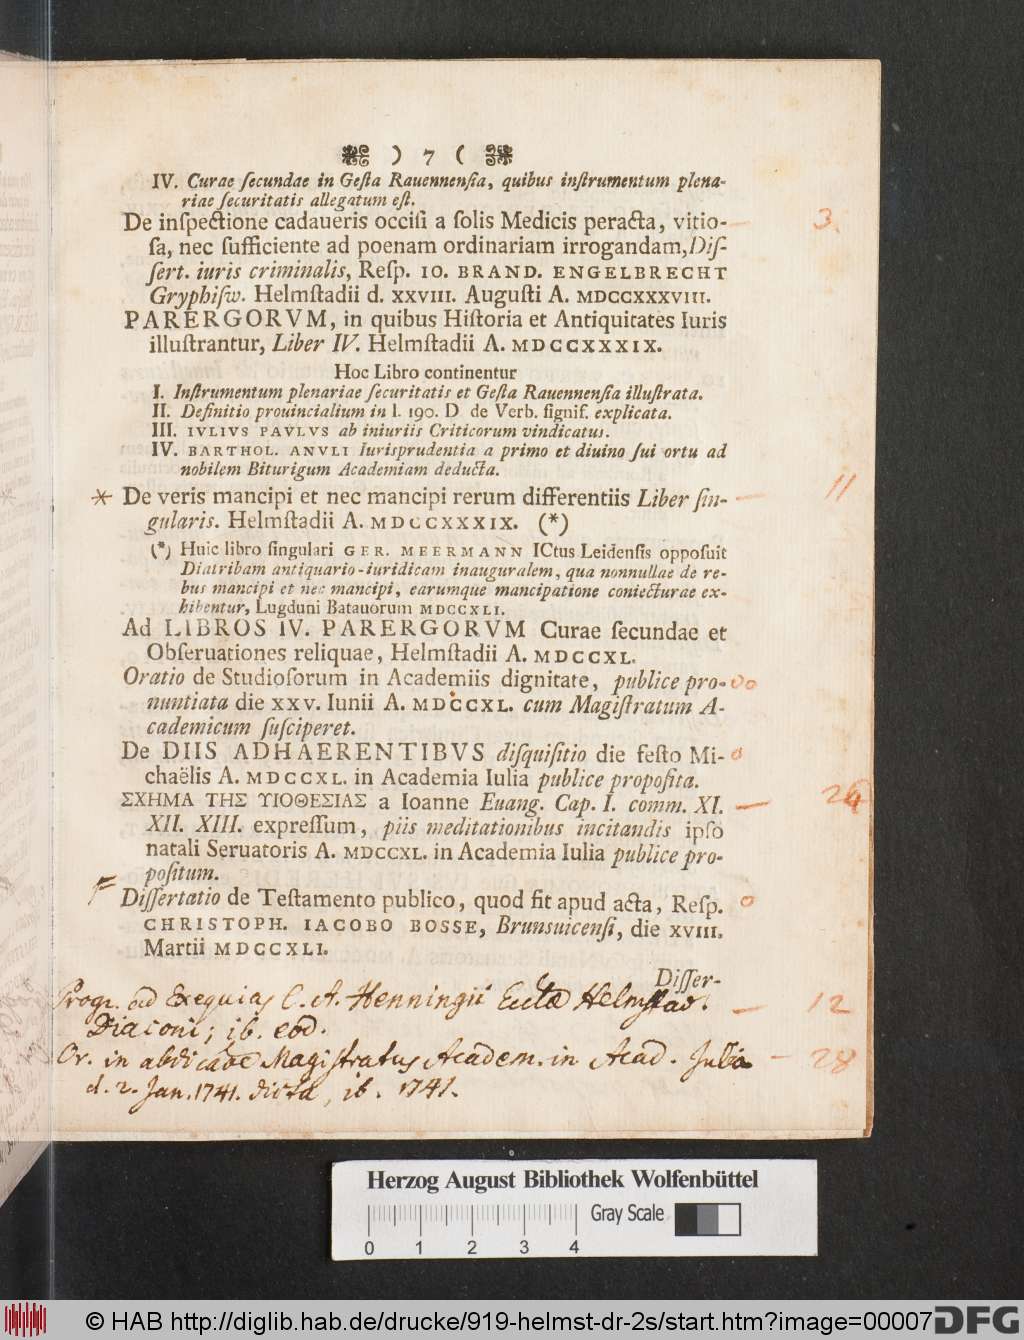 ) 7 (
IV. Curae ſecundae in Geſta Rauennenſia, quibus inſtrumentum plena-
riae ſecuritatis allegatum eſt.
De inſpectione cadaueris occiſi a ſolis Medicis peracta, vitio-
ſa, nec ſufficiente ad poenam ordinariam irrogandam, Diſ-
ſert. iuris criminalis, Reſp. IO. BRAND. ENGELBRECHT
Gryphiſw. Helmſtadii d. XXVIII. Auguſti A. MDCCXXXVIII.
3.
PARERGORVM, in quibus Hiſtoria et Antiquitates Iuris
illuſtrantur, Liber IV. Helmſtadii A. MDCCXXXIX.
Hoc Libro continentur
I. Inſtrumentum plenariae ſecuritatis et Geſta Rauennenſia illuſtrata.
II. Definitio prouincialium in l. 190. D de Verb. ſignif. explicata.
III. IVLIVS PAVLVS ab iniuriis Criticorum vindicatus.
IV. BARTHOL. ANVLI Iurisprudentia a primo et diuino ſui ortu ad
nobilem Biturigum Academiam deducta.
* De veris mancipi et nec mancipi rerum differentiis Liber ſin-
gularis. Helmſtadii A. MDCCXXXIX. (*)
11
(*) Huic libro ſingulari GER. MEERMANN ICtus Leidenſis oppoſuit
Diatribam antiquario-iuridicam inauguralem, qua nonnullae de re-
bus mancipi et nec mancipi, earumque mancipatione coniecturae ex-
hibentur, Lugduni Batauorum MDCCXLI.
Ad LIBROS IV. PARERGORVM Curae ſecundae et
Obſeruationes reliquae, Helmſtadii A. MDCCXL.
Oratio de Studioſorum in Academiis dignitate, publice pro-
nuntiata die XXV. Iunii A. MDCCXL. cum Magiſtratum A-
cademicum ſuſciperet.
De DIIS ADHAERENTIBVS diſquiſitio die feſto Mi-
chaëlis A. MDCCXL. in Academia Iulia publice propoſita.
ΣΧΗΜΑ ΤΗΣ ΥΙΟΘΕΣΙΑΣ a Ioanne Euang. Cap. I. comm. XI.
XII. XIII. expreſſum, piis meditationibus incitandis ipſo
natali Seruatoris A. MDCCXL. in Academia Iulia publice pro-
poſitum.
Diſſertatio de Teſtamento publico, quod fit apud acta, Reſp.
CHRISTOPH. IACOBO BOSSE, Brunsuicenſi, die XVIII.
Martii MDCCXLI.
Diſſer-
Progr. ad Exequias C. A. Henningii Eccl. Helmstad.
Diaconi; ib. eod.
12
Or. in abdicat. Magistratus Academ. in Acad. Julia
d. 2. Jan. 1741. dicta, ib. 1741.
28
Herzog August Bibliothek Wolfenbüttel
Gray Scale
0 1 2 3 4
© HAB http://diglib.hab.de/drucke/919-helmst-dr-2s/start.htm?image=00007
DFG